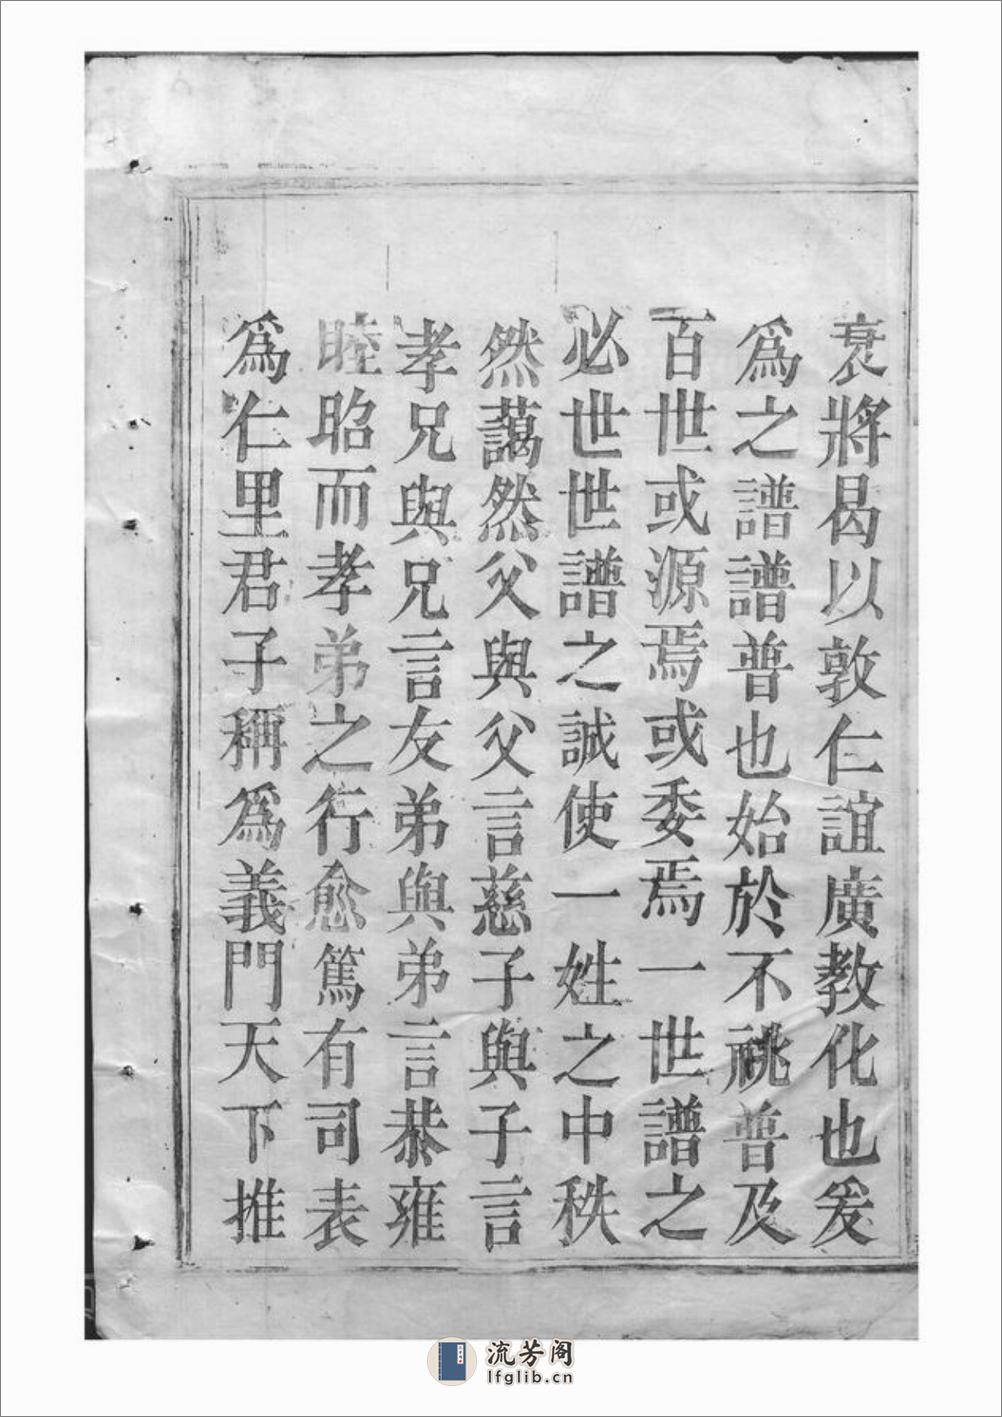 衰將曷以敦仁誼廣教化也爰
爲之譜譜普也始於不祧普及
百世或源焉或委焉一世譜之
必世世譜之誠使一姓之中秩
然藹然父與父言慈子與子言
孝兄與兄言友弟與弟言恭雍
睦昭而孝弟之行愈篤有司表
爲仁里君子稱爲義門天下推
流芳阁
lfglib.cn